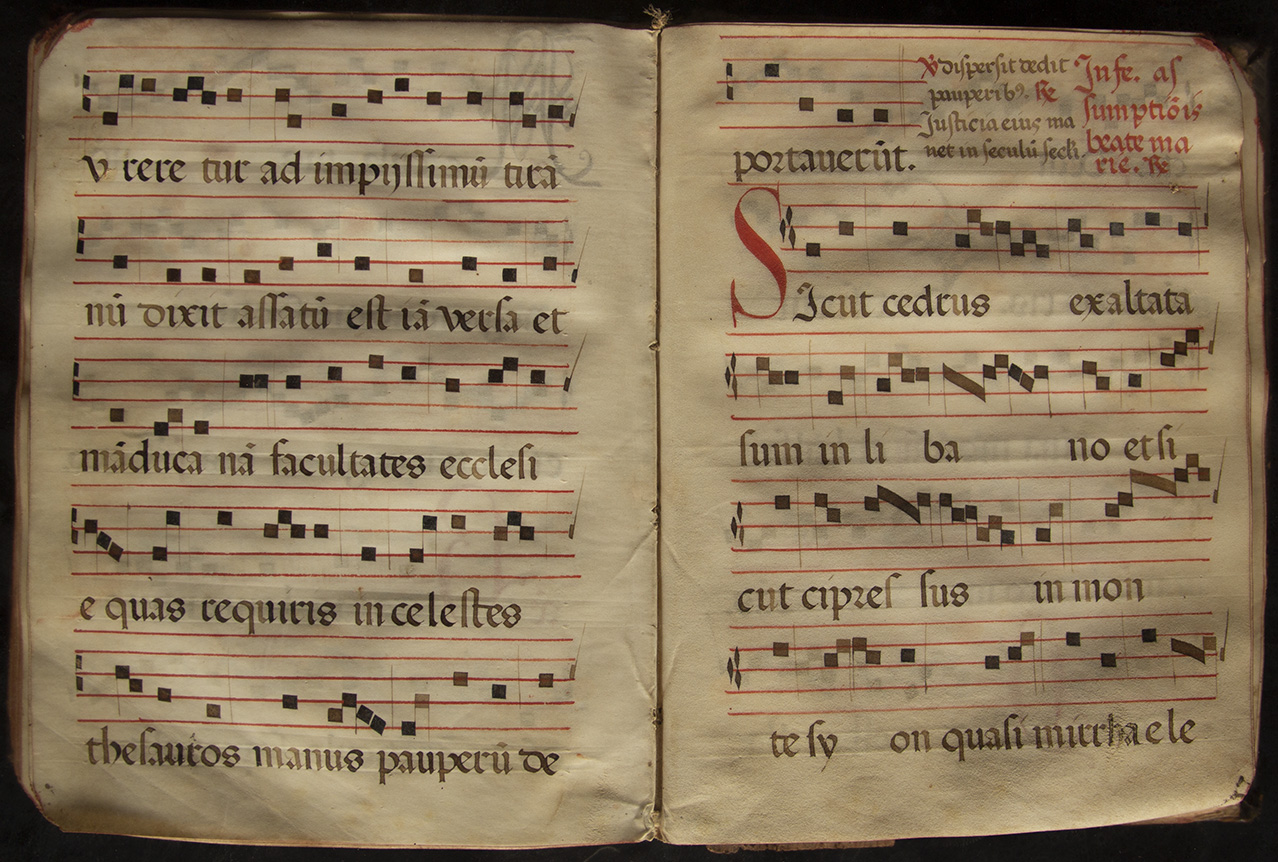 v rere tur ad impijssimū tirā
nū dixit assatū est iā versa et
māduca nā facultates ecclesi
e quas requiris in celestes
thesauros manus pauperū de
portauerūt.
℣ dispersit dedit
pauperibꝰ. ℟
Justicia eius ma
net in seculū secli.
In fe. as
sumptiōis
beate ma
rie. ℟
Sicut cedrus exaltata
sum in li ba no et si
cut cipres sus in mon
te sy on quasi mirrha ele